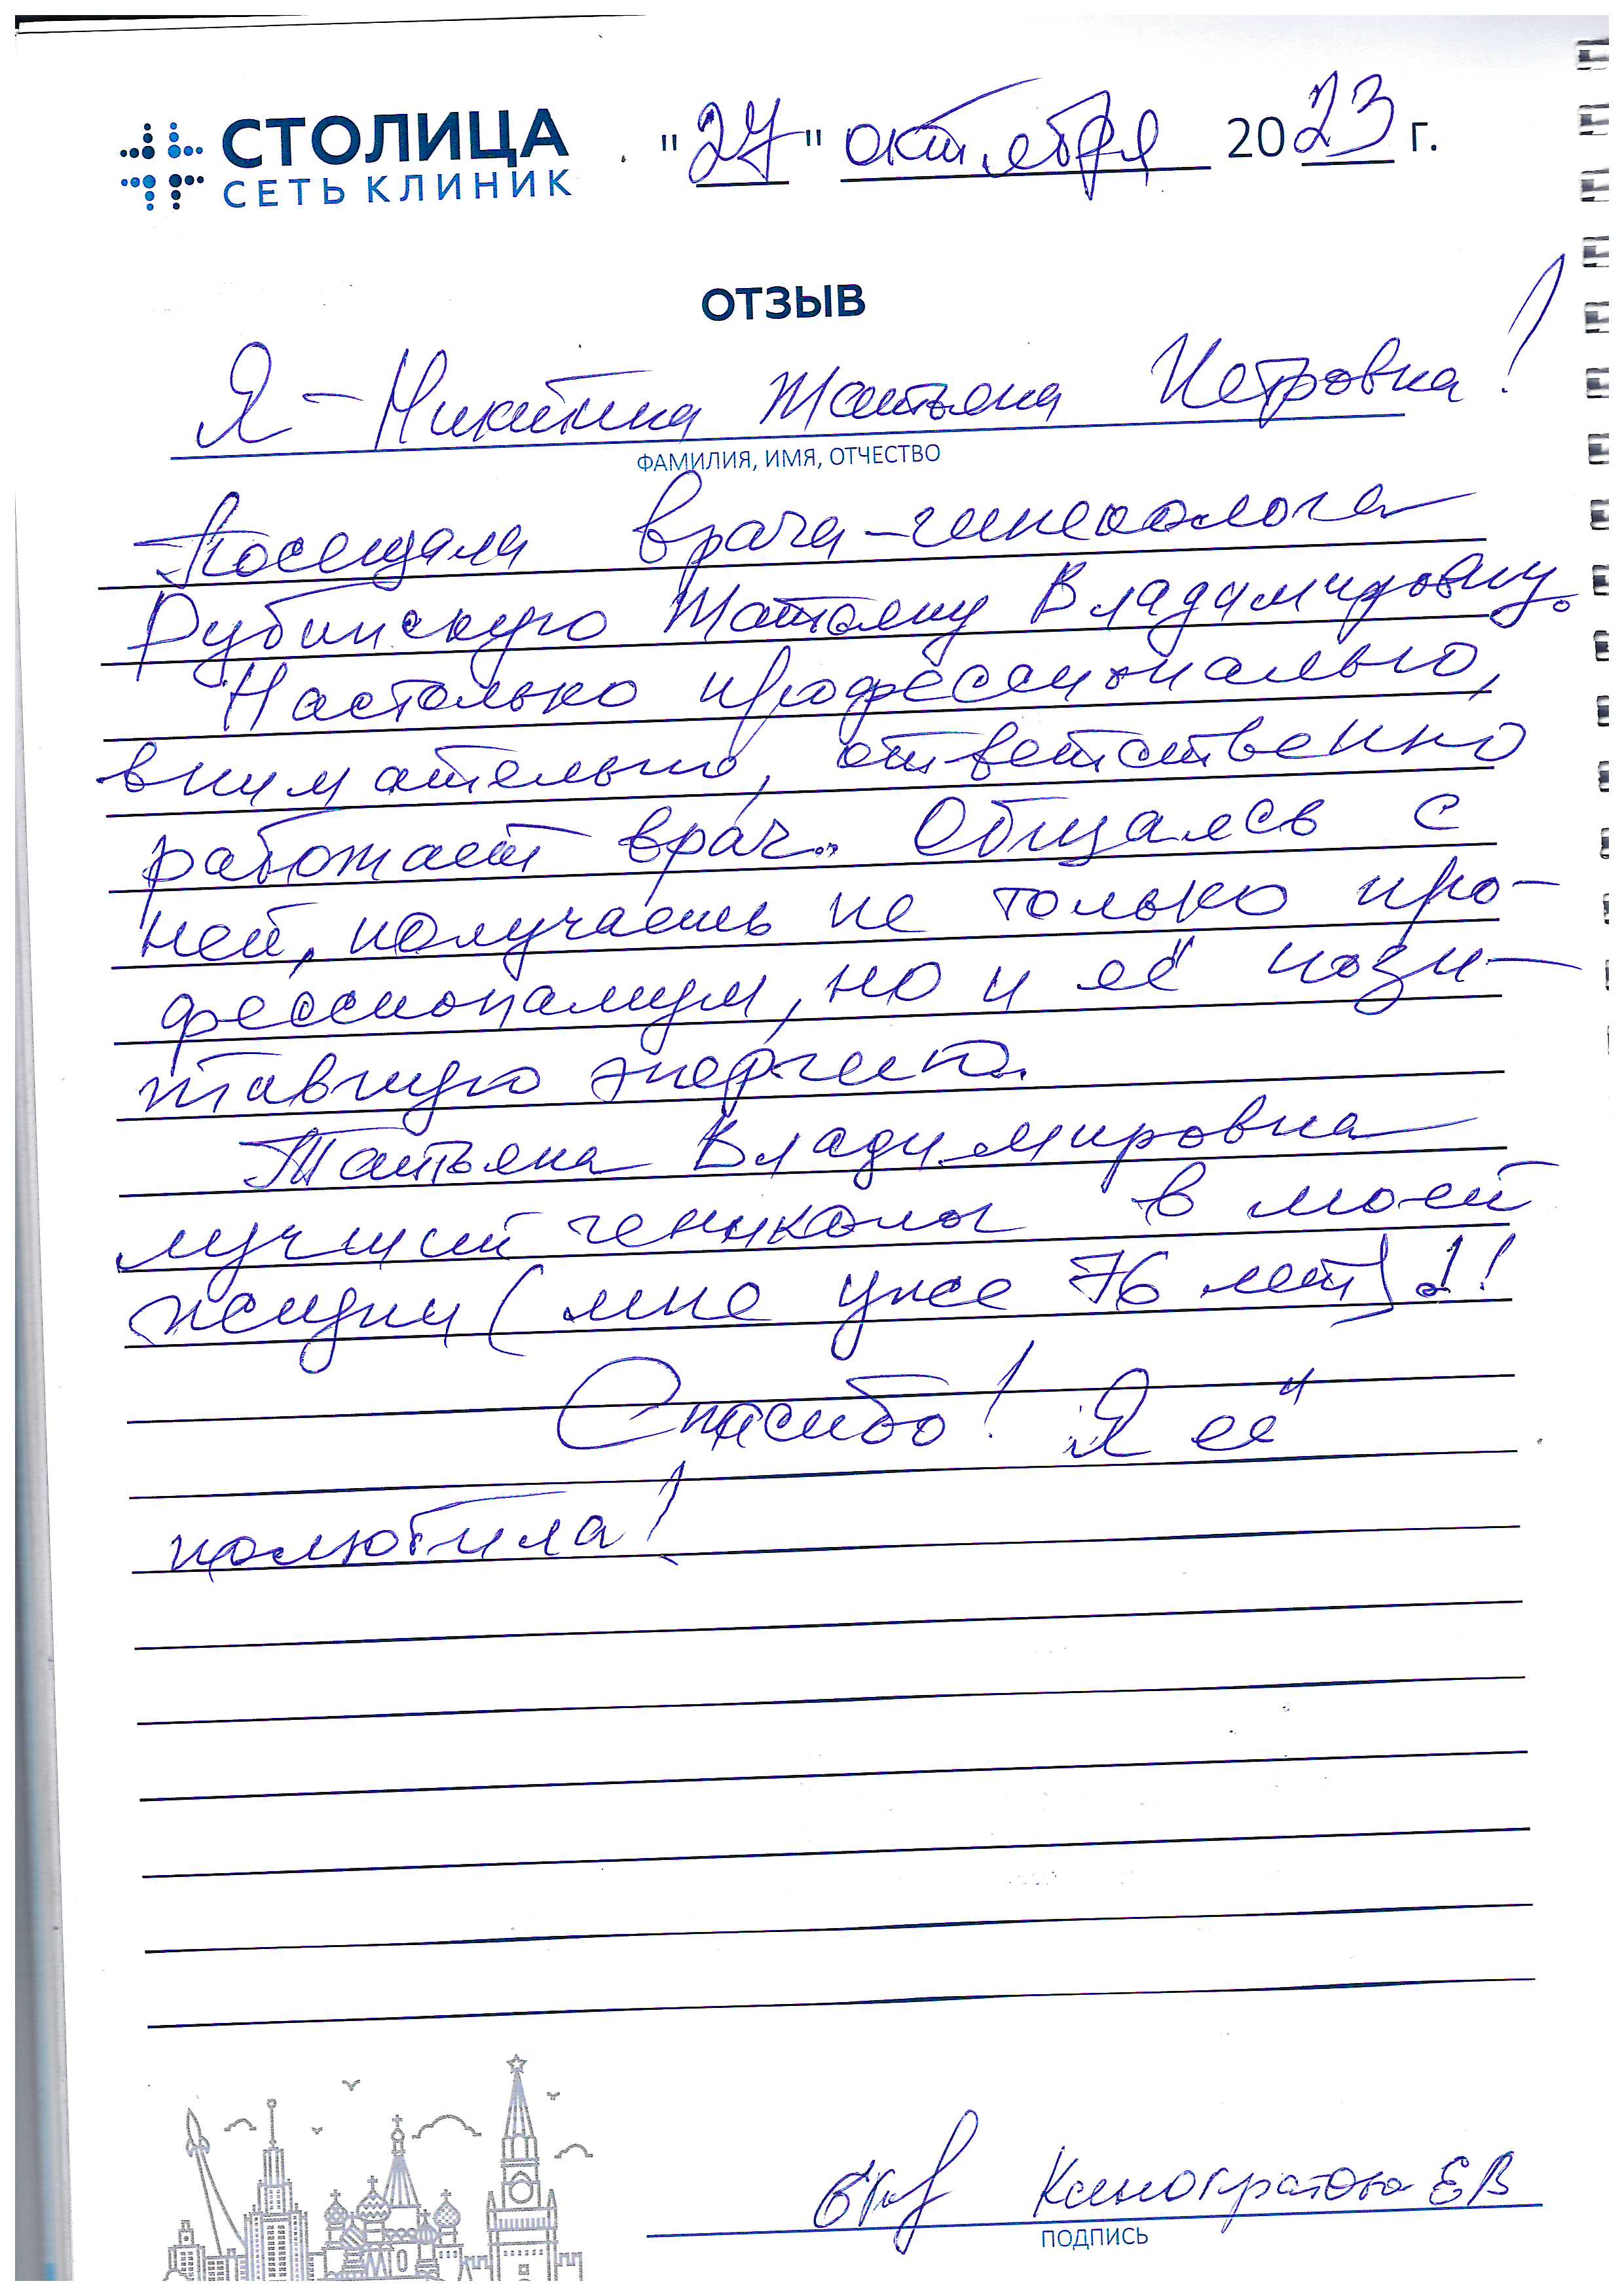 СТОЛИЦА
СЕТЬ КЛИНИК
"27" октября 2023 г.
ОТЗЫВ
Я - Никитина Татьяна Петровна!
ФАМИЛИЯ, ИМЯ, ОТЧЕСТВО
Посещала врача-гинеколога
Рубинскую Татьяну Владимировну.
Настолько профессионально,
внимательно, ответственно
работает врач.. Общаясь с
ней, получаешь не только про-
фессионализм, но и её пози-
тивную энергию.
Татьяна Владимировна
лучший гениколог в моей
жизни (мне уже 76 лет)!!
Спасибо! Я её
полюбила!
ЕВ
ПОДПИСЬ